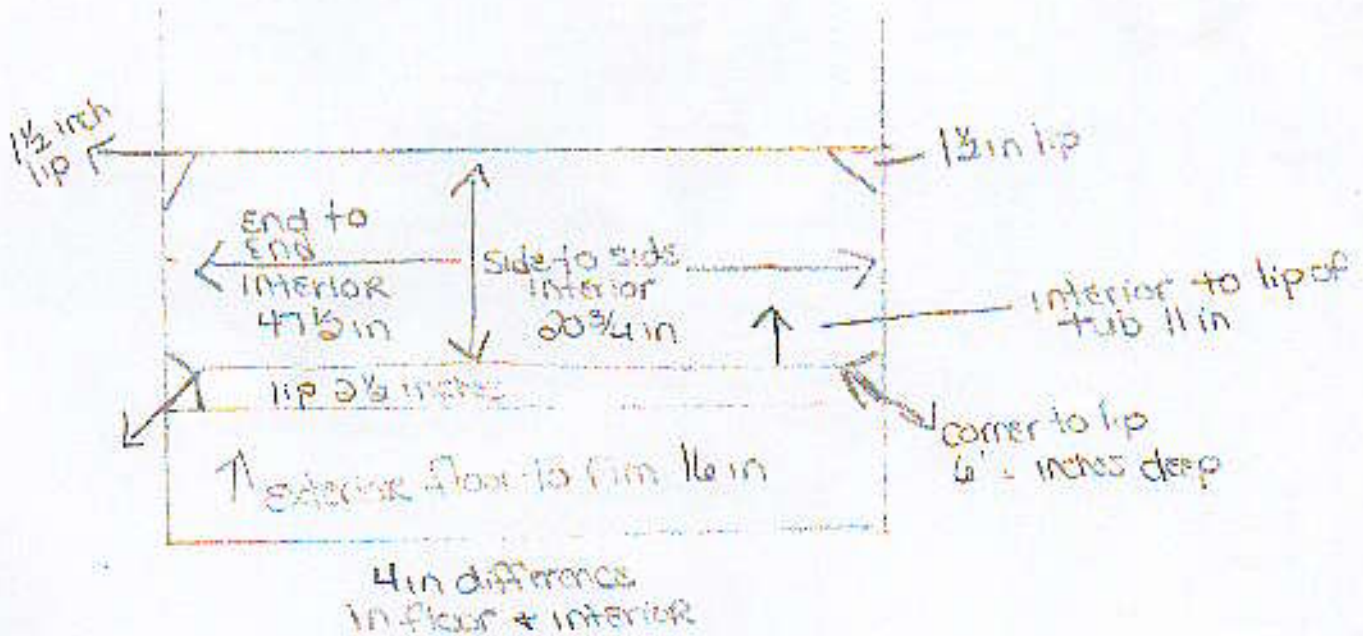 1½ inch
lip
1½ in lip
End to
End
interior
47½ in
Side to side
interior
20¾ in
interior to lip of
tub 11 in
lip 2½ inches
corner to lip
inches deep
exterior floor to rim 16 in
4 in difference
in floor + interior